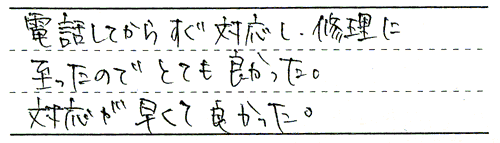 電話してからすぐ対応し、修理に
至ったのでとても良かった。
対応が早くて良かった。